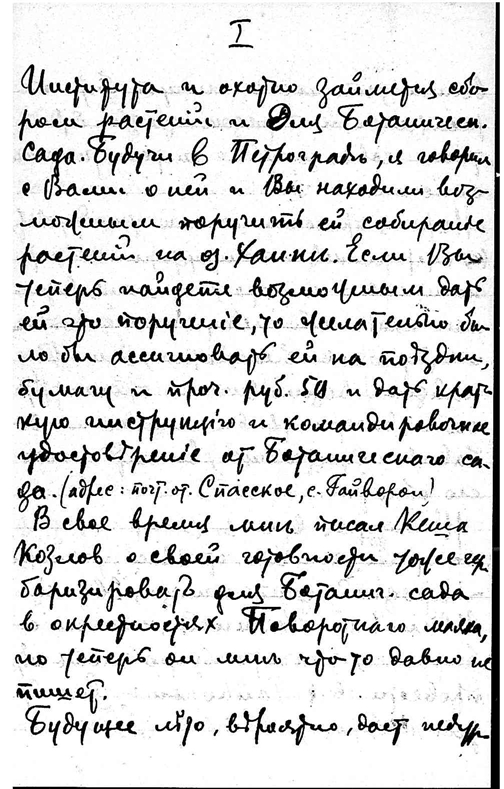 I
Института и охотно займется сбо-
ром растений и для Ботаническ.
сада. Будучи в Петроградѣ, я говорил
с Вами о ней и Вы находили воз-
можным поручить ей собирание
растений на оз. Ханки. Если Вы
теперь найдете возможным дать
ей это порученiе, то желательно бы-
ло бы ассигновать ей на поѣздки,
бумагу и проч. руб. 50 и дать крат-
кую инструкцiю и командировочное
удостовѣренiе от Ботаническаго са-
да. (адрес: почт. от. Спасское, с. Гайворон)
В свое время мнѣ писал Кеша
Козлов о своей готовности тоже гер-
баризировать для Ботанич. сада
в окрестностях Поворотнаго маяка,
но теперь он мнѣ что-то давно не
пишет.
Будущее лѣто, вѣроятно, даст